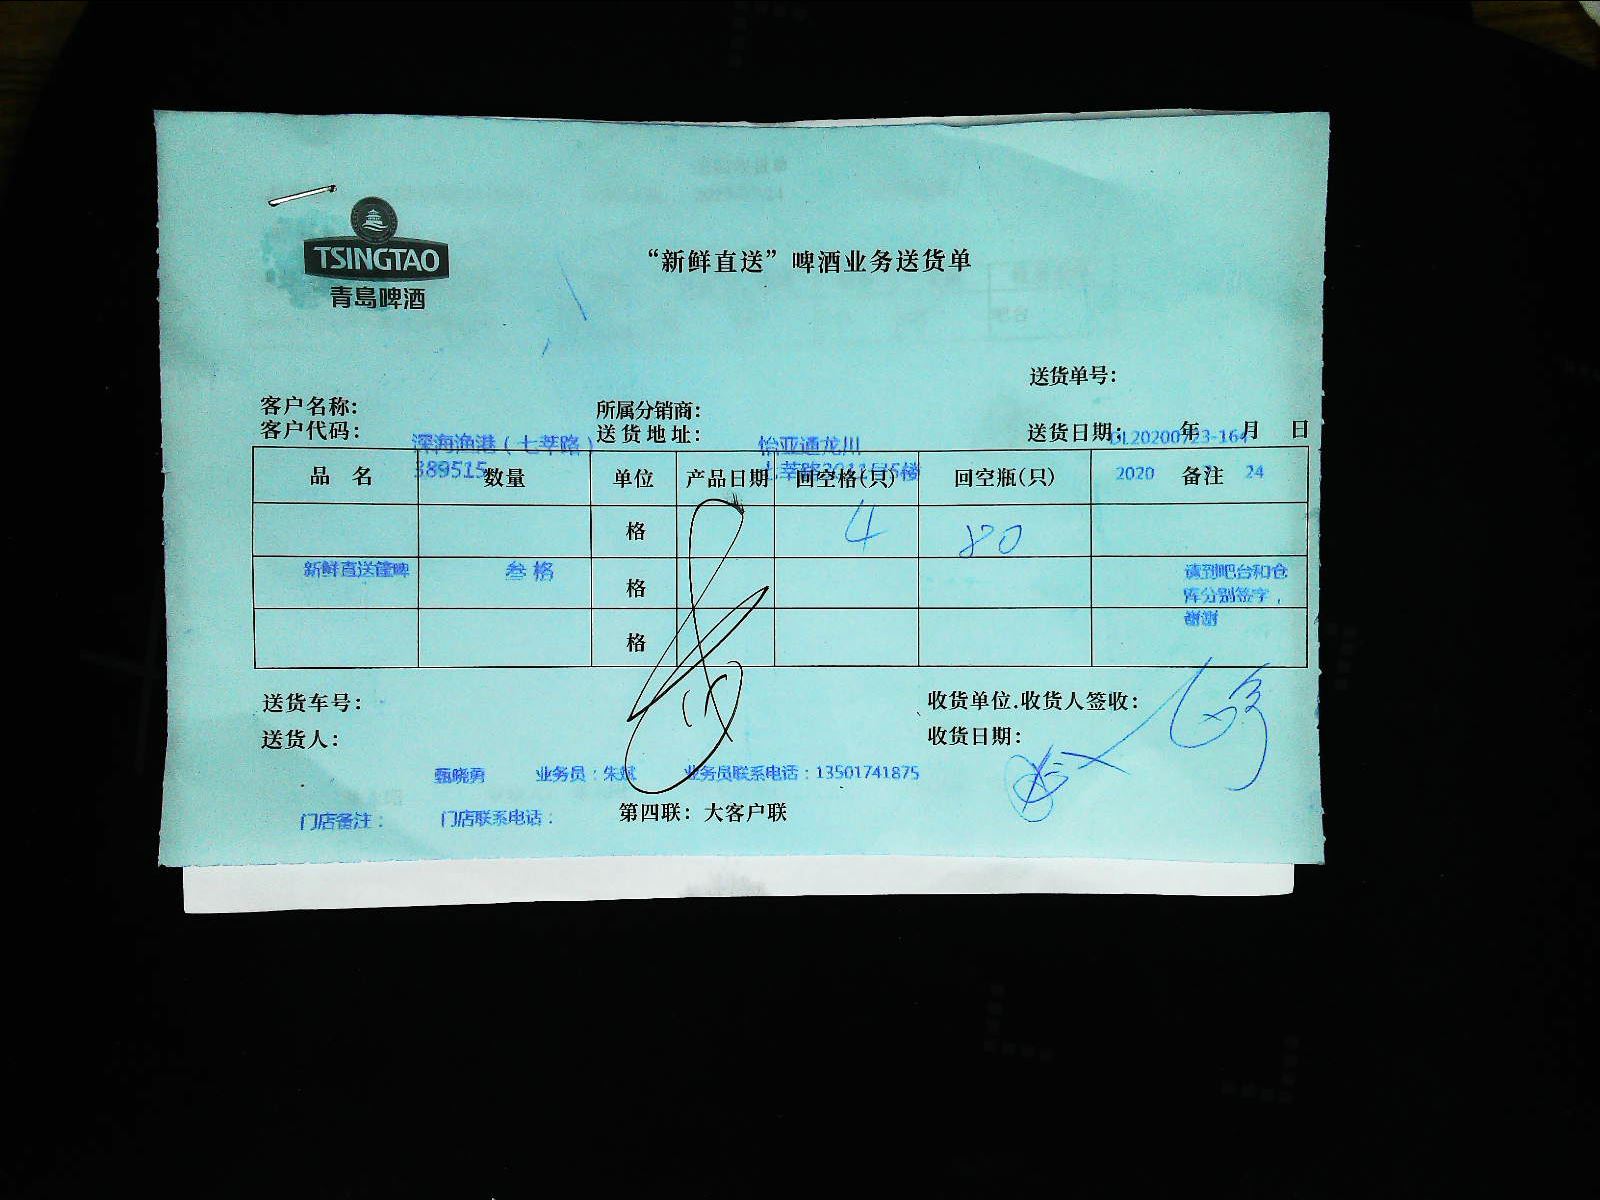 TSINGTAO
青岛啤酒
“新鲜直送”啤酒业务送货单
送货单号：
客户名称： 所属分销商：
客户代码： 送货地址： 送货日期： 年 月 日
深海渔港（七莘路） 怡亚通龙川 DL20200723-164
389515 七莘路3011号5楼 2020 24
品 名 数量 单位 产品日期 回空格(只) 回空瓶(只) 备注
格 4 80
新鲜直送 叁格 格 请到吧台和仓
库分别签字，
谢谢
格
送货车号： 收货单位.收货人签收：
送货人： 收货日期：
甄晓勇 业务员：朱斌 业务员联系电话：13501741875
门店备注： 门店联系电话： 第四联：大客户联